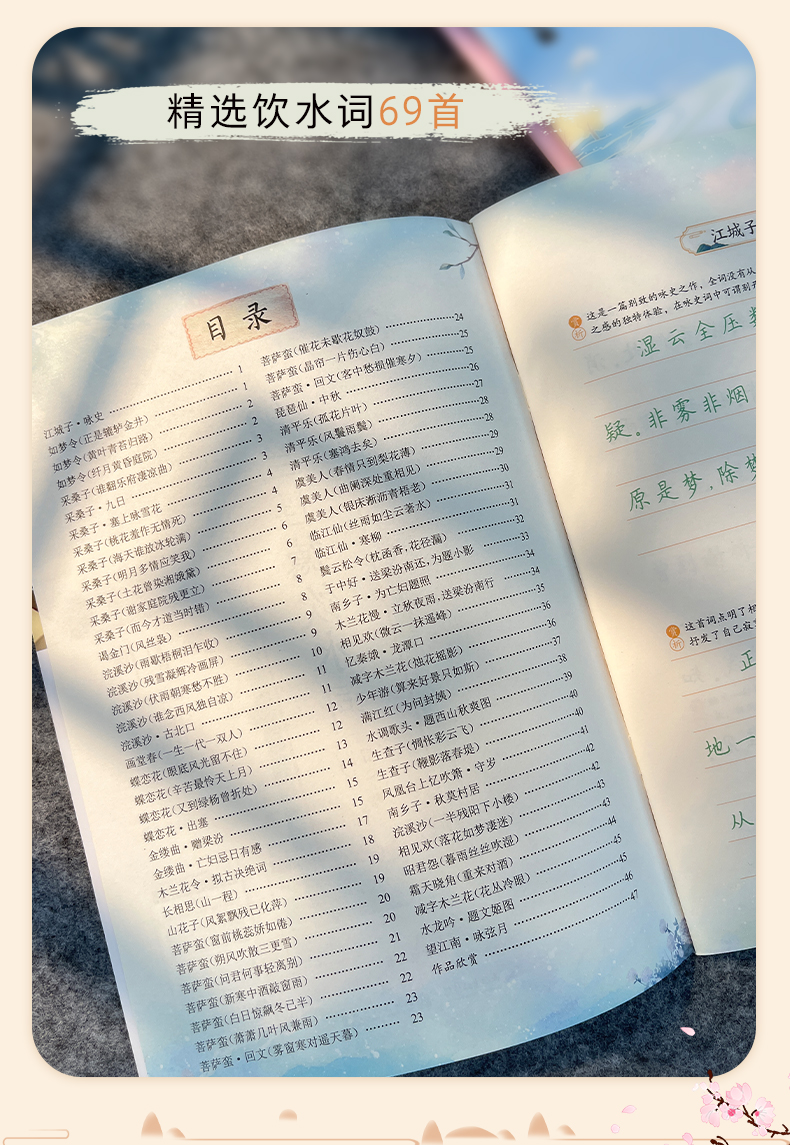 精选饮水词69首
目录
江城子·咏史 1
如梦令(正是辘轳金井) 1
如梦令(黄叶青苔归路) 2
如梦令(纤月黄昏庭院) 2
采桑子(谁翻乐府凄凉曲) 3
采桑子·九日 3
采桑子·塞上咏雪花 4
采桑子(桃花羞作无情死) 4
采桑子(海天谁放冰轮满) 5
采桑子(明月多情应笑我) 6
采桑子(土花曾染湘娥黛) 6
采桑子(谢家庭院残更立) 7
采桑子(而今才道当时错) 8
谒金门(风丝袅) 8
浣溪沙(雨歇梧桐泪乍收) 9
浣溪沙(残雪凝辉冷画屏) 9
浣溪沙(伏雨朝寒愁不胜) 10
浣溪沙(谁念西风独自凉) 11
浣溪沙·古北口 11
画堂春(一生一代一双人) 12
蝶恋花(眼底风光留不住) 12
蝶恋花(辛苦最怜天上月) 13
蝶恋花(又到绿杨曾折处) 14
蝶恋花·出塞 15
金缕曲·赠梁汾 15
金缕曲·亡妇忌日有感 17
木兰花令·拟古决绝词 18
长相思(山一程) 19
山花子(风絮飘残已化萍) 19
菩萨蛮(窗前桃蕊娇如倦) 20
菩萨蛮(朔风吹散三更雪) 20
菩萨蛮(问君何事轻离别) 21
菩萨蛮(新寒中酒敲窗雨) 22
菩萨蛮(白日惊飙冬已半) 22
菩萨蛮(萧萧几叶风兼雨) 23
菩萨蛮·回文(雾窗寒对遥天暮) 23
菩萨蛮(催花未歇花奴鼓) 24
菩萨蛮(晶帘一片伤心白) 25
菩萨蛮·回文(客中愁损催寒夕) 25
琵琶仙·中秋 26
清平乐(孤花片叶) 27
清平乐(风鬟雨鬓) 28
清平乐(塞鸿去矣) 28
虞美人(春情只到梨花薄) 29
虞美人(曲阑深处重相见) 29
虞美人(银床淅沥青梧老) 30
临江仙(丝雨如尘云著水) 31
临江仙·寒柳 31
鬓云松令(枕函香,花径漏) 32
于中好·送梁汾南还,为题小影 33
南乡子·为亡妇题照 34
木兰花慢·立秋夜雨,送梁汾南行 34
相见欢(微云一抹遥峰) 35
忆秦娥·龙潭口 36
减字木兰花(烛花摇影) 36
少年游(算来好景只如斯) 37
满江红(为问封姨) 38
水调歌头·题西山秋爽图 39
生查子(惆怅彩云飞) 40
生查子(鞭影落春堤) 40
凤凰台上忆吹箫·守岁 41
南乡子·秋莫村居 42
浣溪沙(一半残阳下小楼) 42
相见欢(落花如梦凄迷) 43
昭君怨(暮雨丝丝吹湿) 43
霜天晓角(重来对酒) 44
减字木兰花(花丛冷眼) 45
水龙吟·题文姬图 45
望江南·咏弦月 46
作品欣赏 47
江城子
赏析
这是一篇别致的咏史之作,全词没有从
之感的独特体验,在咏史词中可谓别
湿云全压
疑。非雾非烟
原是梦,除梦
赏析
这首词点明了
抒发了自己寂
正
地一
从